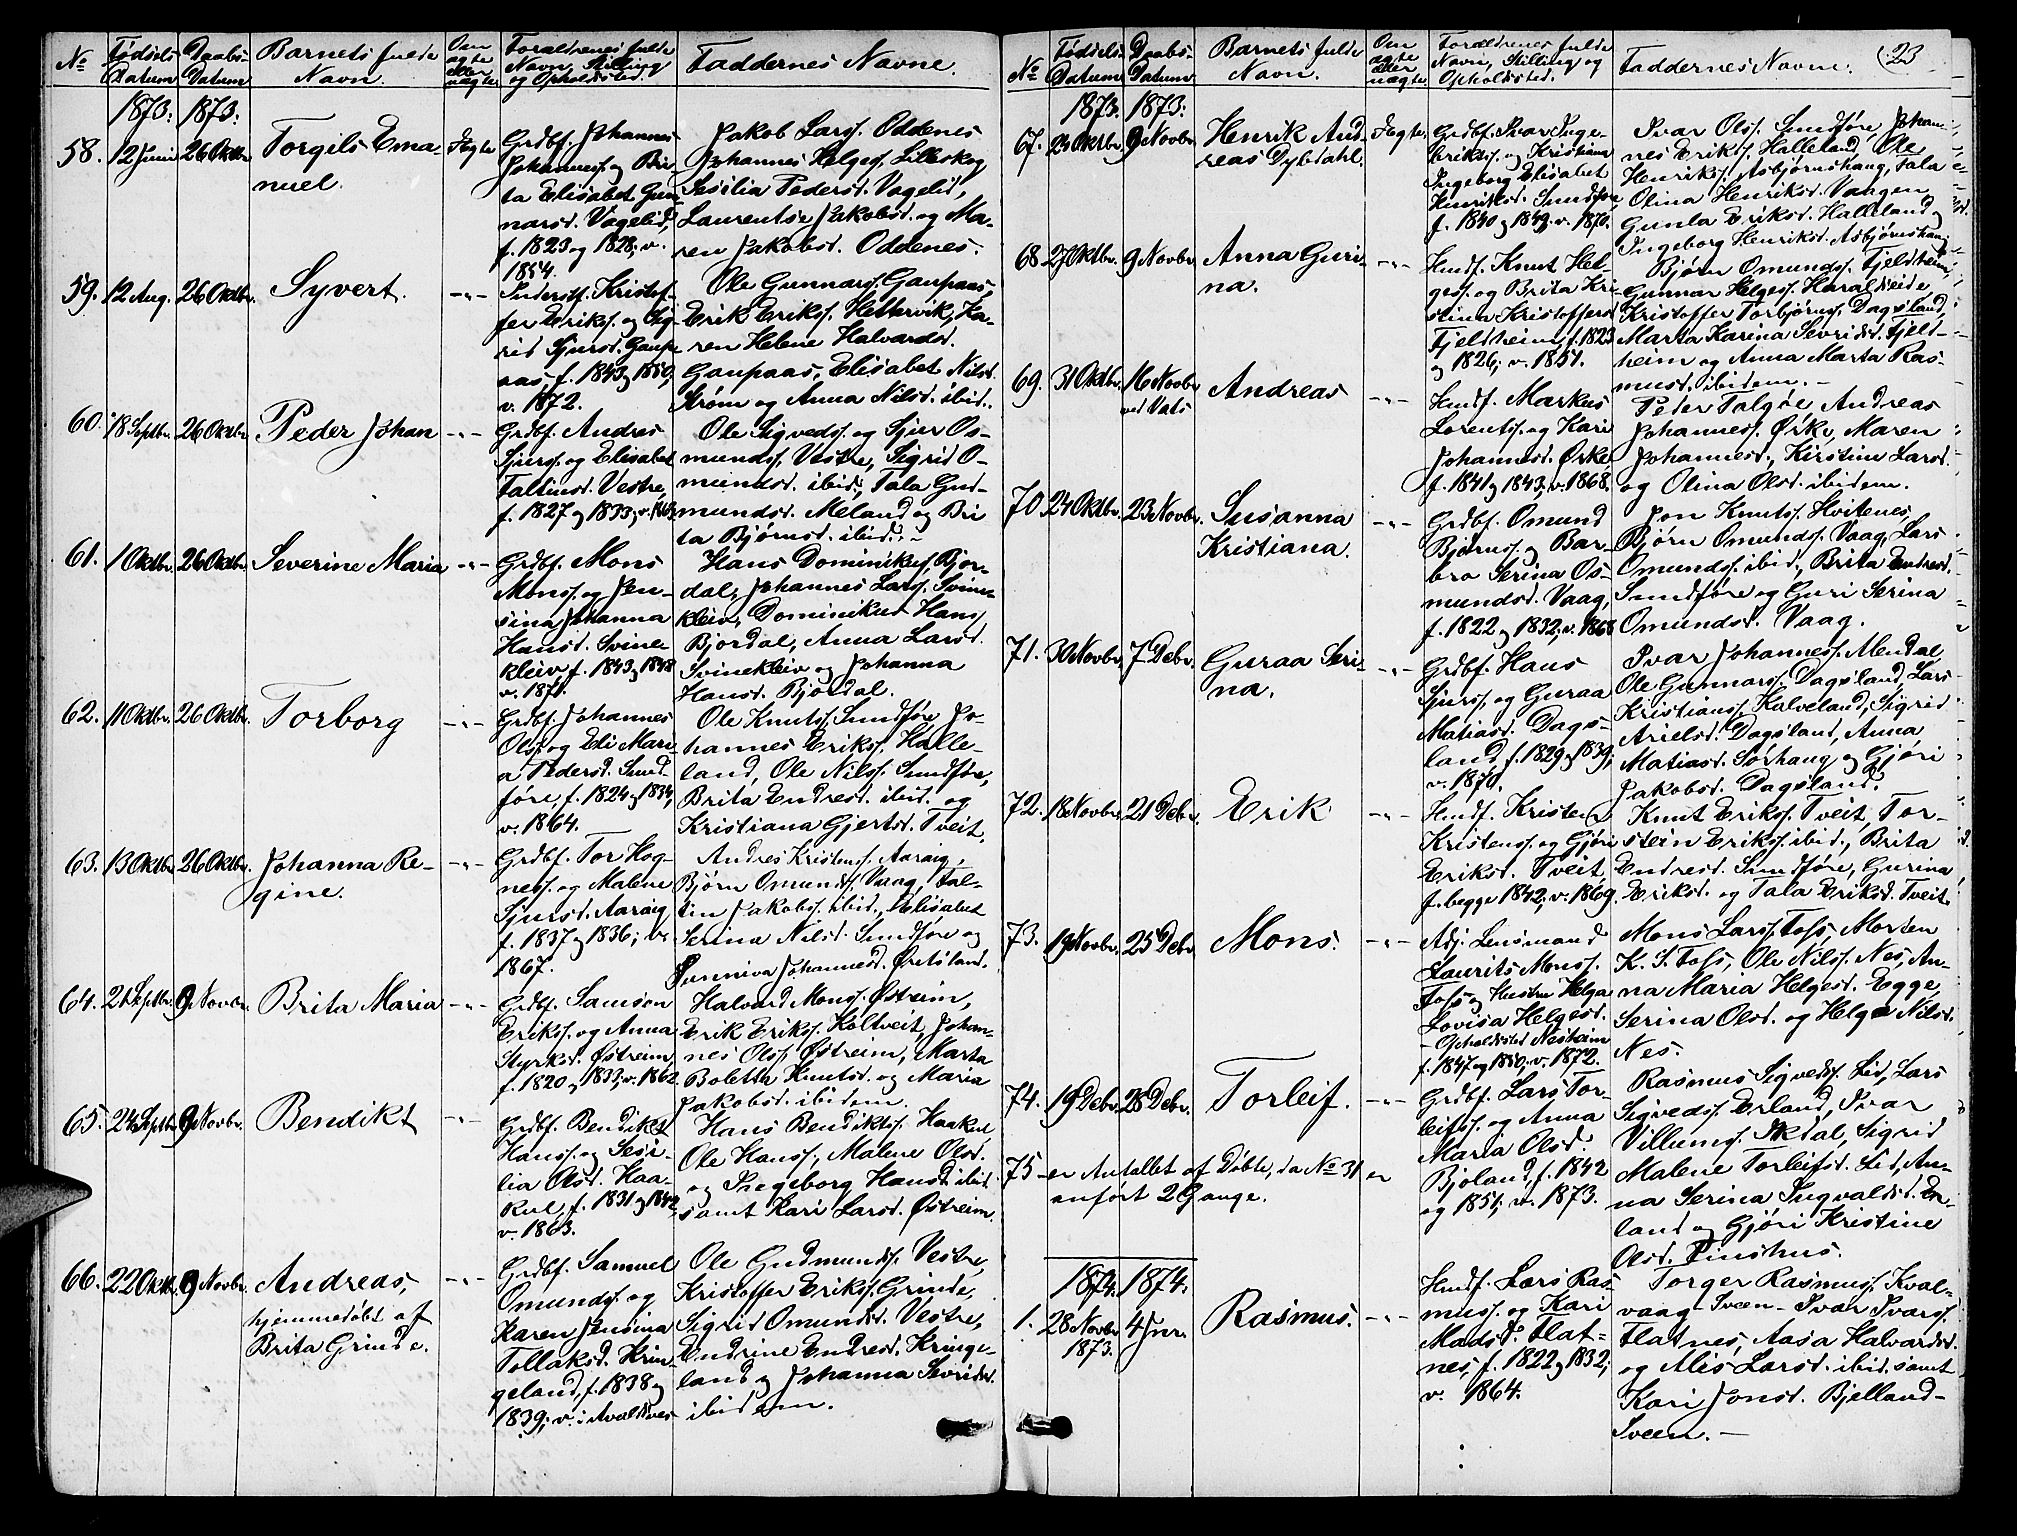 No Fødsels Datum Daabs Datum Barnets fulde Navn. Om ægte eller uægte Forældrenes fulde Navn, Stilling og Opholdssted. Faddernes Navne.
1873: 1873:
58. 12 Juni 26 Oktbr. Torgils Ema-
nuel.
Ægte
Grdbf. Johannes
Johanness. og Bri-
ta Elisabet Gun-
narsd. Vagelid,
f. 1823 og 1828, v.
1854.
Jakob Larss. Oddenes
Johannes Helges. Lilleskog
Sesilia Pedersd. Vagelid,
Laurentse Jakobsd. og Ma-
ren Jakobsd. Oddenes.
59. 12 Aug. 26 Oktbr. Syvert. -"-
Inderstf. Kristof-
fer Erikss. og Sig-
rid Sjursd. Gaup-
aas, f. 1843 og 1850,
v. 1872.
Ole Gunnars. Gaupaas,
Erik Erikss. Hettervik, Ka-
ren Helene Halvardsd.
Gaupaas, Elisabet Nilsd.
Strøm og Anna Nilsd. ibid.
60. 18 Septbr. 26 Oktbr. Peder Johan -"-
Grdbf. Andres
Sjurss. og Elisabet
Faltinsd. Vestre,
f. 1827 og 1833, v. 1863.
Ole Sigveds. og Sjur Os-
munds. Vestre, Sigrid O-
mundsd. ibid., Tala Gud-
mundsd. Meland og Bri
ta Bjørnsd. ibid.
61. 1 Oktbr. 26 Oktbr. Severine Maria -"-
Grdbf. Mons
Monss. og Jen-
sina Johanna
Hansd. Svine-
kleiv, f. 1843 og 1848
v. 1871.
Hans Dominikus. Bjor-
dal, Johannes Larss. Svine-
kleiv, Dominikus Hans.
Bjordal, Anna Larsd.
Svinekleiv og Johanna
Hansd. Bjordal.
62. 11 Oktbr. 26 Oktbr. Torborg -"-
Grdbf. Johannes
Olss. og Edi Mari-
a Pedersd. Sund-
føre, f. 1824 og 1834,
v. 1864.
Ole Knuts. Sundføre, Jo-
hannes Erikss. Halle-
land, Ole Nilss. Sundføre,
Brita Endresd. ibid. og
Kristiana Gjertsd. Tveit.
63. 13 Oktbr. 26 Oktbr. Johanna Re-
gine. -"-
Grdbf. Tor Hog-
ness. og Malene
Sjursd. Aaraig,
f. 1837 og 1836; v.
1867.
Andres Kristens. Aaraig,
Bjørn Omunds. Vaag, Fal-
tin Jakobs. ibid., Elisabet
Serina Nilsd. Sundføre og
Sunniva Johannesd. Øretsland.
64. 21 Septbr. 9 Novbr. Brita Maria -"-
Grdbf. Samson
Erikss. og Anna
Styrksd. Østreim
f. 1820 og 1833; v. 1862.
Halvard Monss. Østreim,
Erik Erikss. Koltveit, Johan-
nes Olss. Østreim, Marta
Boletta Knutsd. og Maria
Jakobsd. ibidem.
65. 24 Septbr. 9 Novbr. Bendikt -"-
Grdbf. Bendikt
Hanss. og Sesi-
lia Olsd. Haa-
kul, f. 1831 og 1842,
v. 1863.
Hans Bendikts. Haakul
Ole Hanss., Malene Olsd.
og Ingeborg Hansd. ibid.
samt Kari Larsd. Østreim.
66. 22 Oktbr. 9 Novbr. Andreas,
hjemmedøbt af
Brita Grinde. -"-
Grdbf. Samuel
Omunds. og
Karen Jensina
Tollaksd. Krin-
geland, f. 1838 og
1839; v. i Avaldsnes
Ole Gudmunds. Vestre,
Kristoffer Erikss. Grinde,
Sigrid Omundsd. Vestre,
Endrine Endresd. Kringe-
land og Johanna Sevridsd.
ibidem.
No Fødsels Datum Daabs Datum. Barnets fulde Navn. Om ægte eller uægte. Forældrenes fulde Navn, Stilling og Opholdssted. Faddernes Navne. 23
1873. 1873:
67. 23 Oktbr. 9 Novbr. Henrik And-
reas Dybdahl. Ægte.
Grdbf. Ivar Inge-
brikts. og Kristiana
Ingeborg Elisabet
Henriksd. Sundføre
f. 1840 og 1849, v. 1870.
Ivar Olss. Sundføre, Johan-
nes Eriks. Halleland, Ole
Henriks. Asbjørnshaug, Tala
Olina Henriksd. Vaagen,
Gunla Eriksd. Halleland og
Ingeborg Henriksd. Asbjørnshaug
68 27 Oktbr. 9 Novbr. Anna Guri-
na. -"-
Husf. Knut Hel-
gess. og Brita Kri-
stina Kristoffersd.
Fjeldheim, f. 1823
og 1826; v. 1851.
Bjørn Omunds. Fjeldheim,
Gunnar Helges. Haraldseide,
Kristoffer Torbjørns. Dagsland,
Marta Karina Sevridsd. Fjeld-
heim og Anna Marta Ras-
musd. ibidem. -
69. 31 Oktbr. 16 Novbr.
ved Vats
Andreas -"-
Husf. Markus
Lorents. og Kari
Johannesd. Ørke,
f. 1841 og 1843, v. 1868.
Peder Talgøe, Andreas
Johanness. Ørke, Maren
Johannesd., Kirstine Larsd.
og Olina Olsd. ibidem.
70. 24 Oktbr. 23 Novbr. Susanna
Kristiana. -"-
Grdbf. Omund
Bjørnss. og Bar-
bro Serina Os-
mundsd. Vaag,
f. 1822 og 1832; v. 1868
Jon Knuts. Hvitenes,
Bjørn Omunds. Vaag, Lars
Omunds. ibid., Brita Endresd.
Sundføre og Guri Serina
Omundsd. Vaag.
71. 30 Novbr. 7 Debr. Guraa Seri-
na. -"-
Grdbf. Hans
Sjurss. og Guraa
Matiasd. Dags-
land, f. 1829 og 1839;
v. 1870.
Ivar Johanness. Mendal
Ole Gunnars. Dagsland, Lars
Kristians. Halveland, Sigrid
Arielsd. Dagsland, Anna
Matiasd. Sørhaug og Gjøri
Jakobsd. Dagsland.
72. 18 Novbr. 21 Debr. Erik -"-
Husf. Kristen
Kristens. og Gjøri
Eriksd. Tveit,
f. begge 1842, v. 1869.
Knut Erikss. Tveit, Tor-
stein Erikss. ibid., Brita
Endresd. Sundføre, Gurina
Eriksd. og Tala Eriksd. Tveit.
73. 19 Novbr. 25 Debr. Mons. -"-
Adj. Lensmand
Laurits Monss.
Foss og Hustru Helga
Lovisa Helgesd.
- Opholdssted Nesheim
f. 1847 og 1850; v. 1872.
Mons Larss. Foss, Morten
K. S. Foss, Ole Nilss. Nes, An-
na Maria Helgesd. Egge,
Serina Olsd. og Helga Nilsd.
Nes.
74. 19 Debr. 28 Debr. Torleif. -"-
Grdbf. Lars Tor-
leifss. og Anna
Maria Olsd.
Bjoland, f. 1842
og 1851; v. 1873.
Rasmus Sigveds. Lid, Lars
Sigveds. Erland, Ivar
Villums. Økdal, Sigrid
Malene Torleifsd. Lid, An-
na Serina Ingvaldsd. Er-
land og Gjøri Kristine
Olsd. Finshus.
75 - er Antallet af Døbte, da No 31 er
anført 2 Gange.
1874. 1874.
1. 28 Novbr
1873.
4 Jnr. Rasmus. -"-
Husf. Lars Ras-
muss. og Kari
Madsd. Flat-
nes, f. 1822 og 1832;
v. 1864.
Torger Rasmus. Kval-
vaag - Sveen - Ivar Ivars.
Flatnes, Aasa Halvardsd.
og Alis Larsd. ibid. samt
Kari Jonsd. Bjelland-
Sveen. -